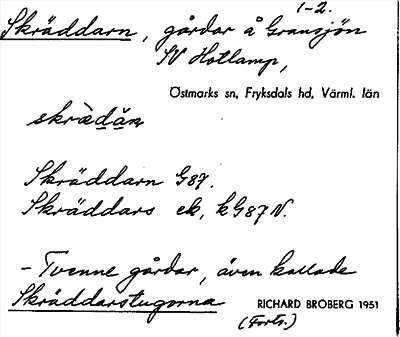 1-2.
Skräddarn, gårdar å Gransjön
SV Hotlamp,
Östmarks sn, Fryksdals hd, Värml. län
skrädăn,
Skräddarn G87.
Skräddars ek, kG87N.
- Tvenne gårdar, även kallade
Skräddarstugorna RICHARD BROBERG 1951
(Forts.)